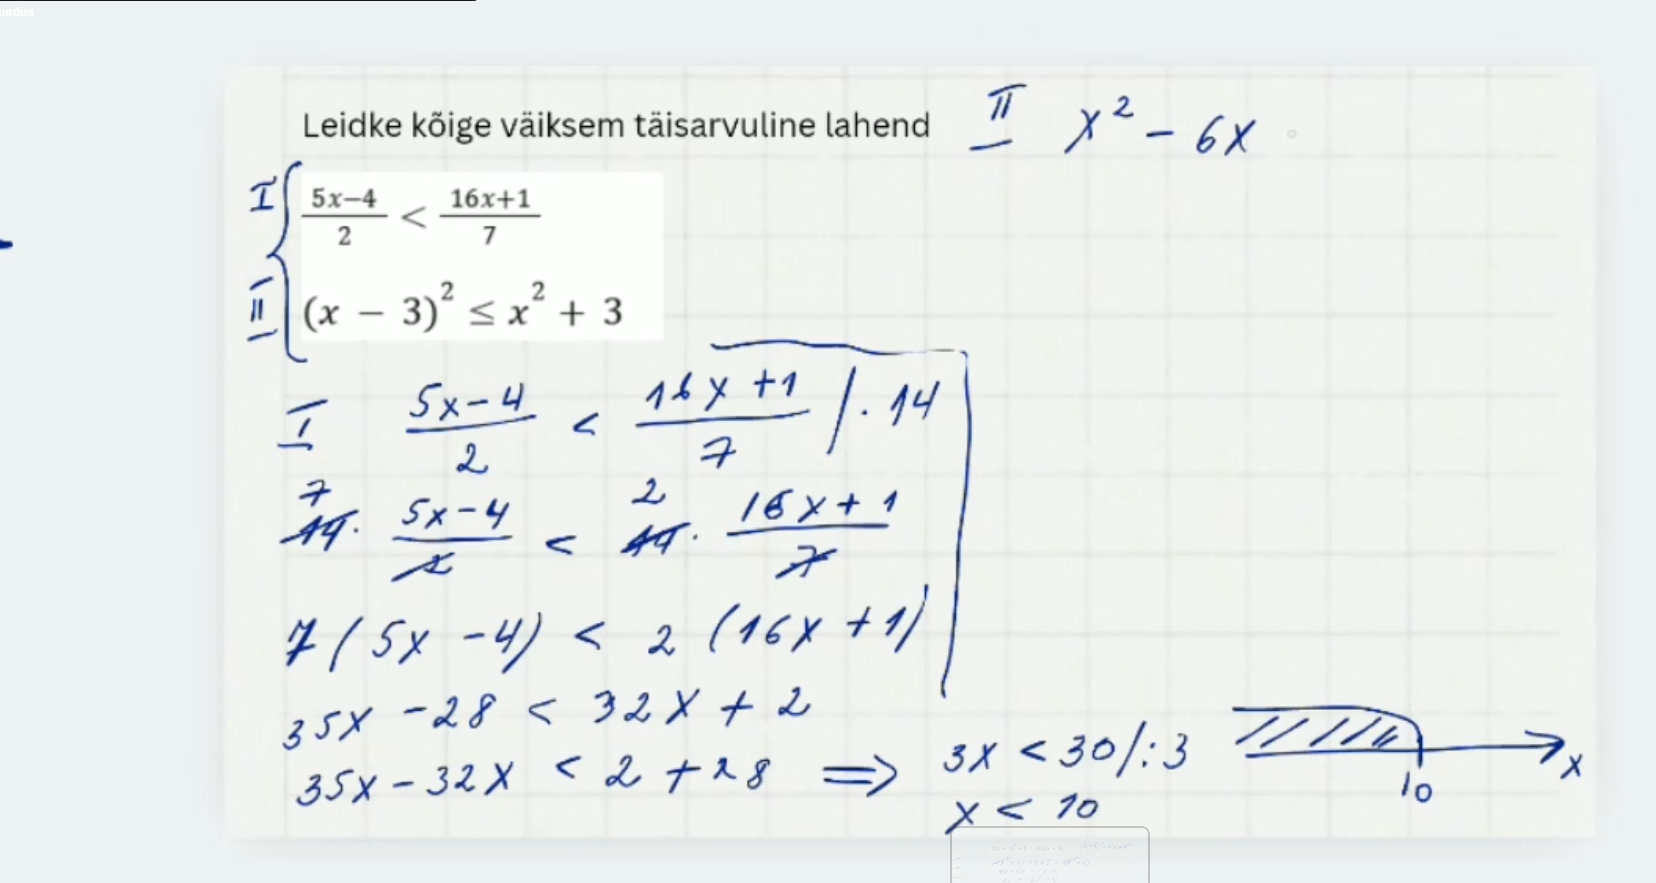 undus
Leidke kõige väiksem täisarvuline lahend
II x² - 6x
I 5x-4/2 < 16x+1/7
II (x - 3)² ≤ x² + 3
I 5x-4/2 < 16x+1/7 /· 14
7 14 · 5x-4/2 < 2 14 · 16x+1/7
7(5x -4) < 2 (16x +1)
35x -28 < 32x + 2
35x - 32x < 2 + 28 ⇒ 3x < 30 /:3
x < 10
10 x